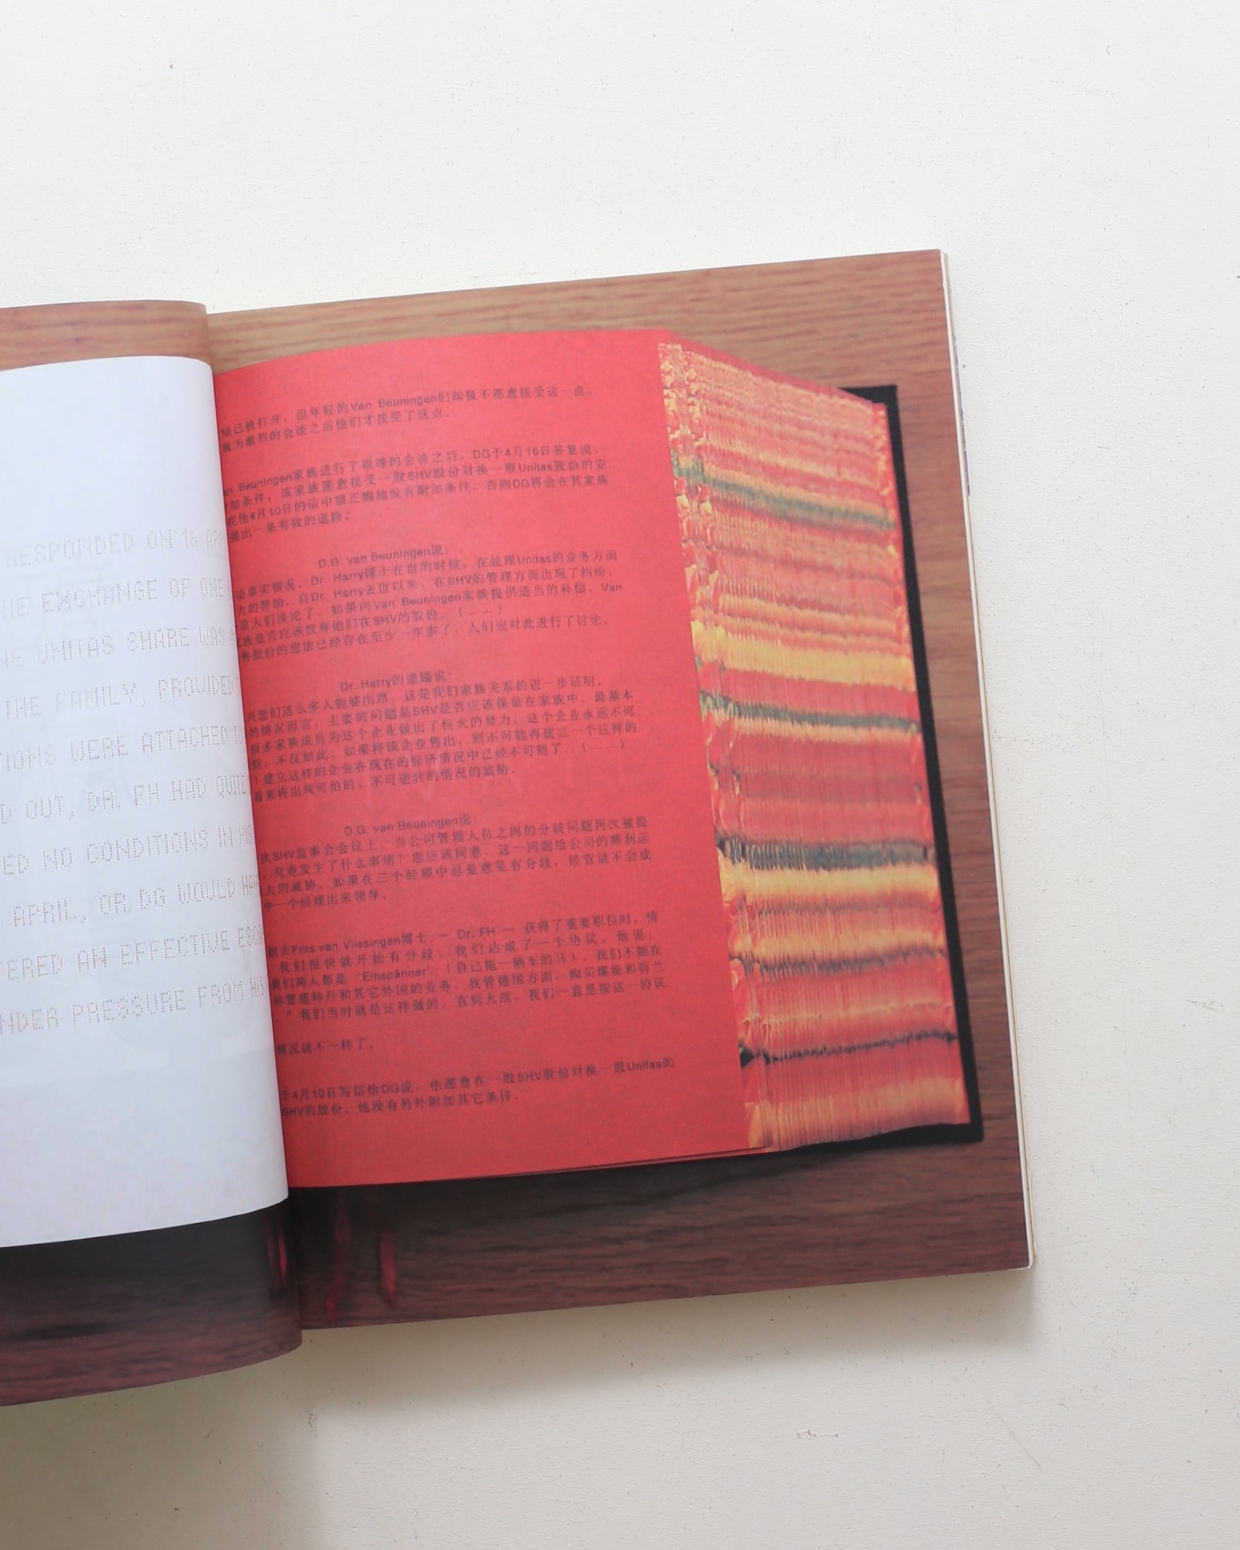 RESPONDED ON 16 APR
HE EXCHANGE OF ONE
NE UNITAS SHARE WAS
THE FAMILY, PROVIDED
TIONS WERE ATTACHED
D OUT, DR. FH HAD QUIE
ED NO CONDITIONS IN HIS
APRIL, OR DG WOULD HA
ERED AN EFFECTIVE ESC
NDER PRESSURE FROM HIS
已被打开，但年轻的Van Beuningen们却极不愿意接受这一点。
极为激烈的会谈之后他们才接受了这点。
an Beuningen家族进行了艰难的会谈之后，DG于4月16日答复说，
加条件，该家族愿意接受一股SHV股份对换一股Unitas股份的安
在他4月10日的信中很正确地没有附加条件，否则DG将会在其家族
提出一条有效的退路。
D.G. van Beuningen说：
事实情况，Dr. Harry博士在世的时候，在处理Unitas的业务方面
大的帮助，自Dr. Harry去世以来，在SHV的管理方面出现了纠纷，
人们谈论了，如果向Van Beuningen家族提供适当的补偿，Van
族是否应该放弃他们在SHV的股份。（……）
售股份的想法已经存在至少一年多了，人们也对此进行了讨论。
Dr. Harry的遗孀说：
您们这么多人能够出席，这是我们家族关系的进一步证明。
的情况而言，主要的问题是SHV是否应该保留在家族中，最基本
很多家族成员为这个企业做出了巨大的努力，这个企业永远不可
到，不仅如此，如果将该企业售出，则不可能再建立一个这样的
建立这样的企业在现在的经济情况中已经不可能了。（……）
看来将出现可怕的、不可逆转的情况的威胁。
D.G. van Beuningen说：
次SHV监事会会议上，当公司管理人员之间的分歧问题再次被提
，究竟发生了什么事情？您应该同意，这一问题给公司的顺利运
大的威胁，如果在三个经理中总是意见有分歧，经营就不会成
中一个经理出来领导。
去Fris van Vlissingen博士 — Dr. FH — 获得了重要职位时，情
我们很快就开始有分歧，我们达成了一个协议，他说：
我们两人都是‘Einspänner’（自己拖一辆车的马），我们不能在
管鹿特丹和其它外国的业务，我管德国方面，购买煤炭和荷兰
。”我们当时就是这样做的，直到大战，我们一直是按这一协议
情况就不一样了。
于4月10日写信给DG说，他愿意在一股SHV股份对换一股Unitas的
SHV的股份，他没有另外附加其它条件。